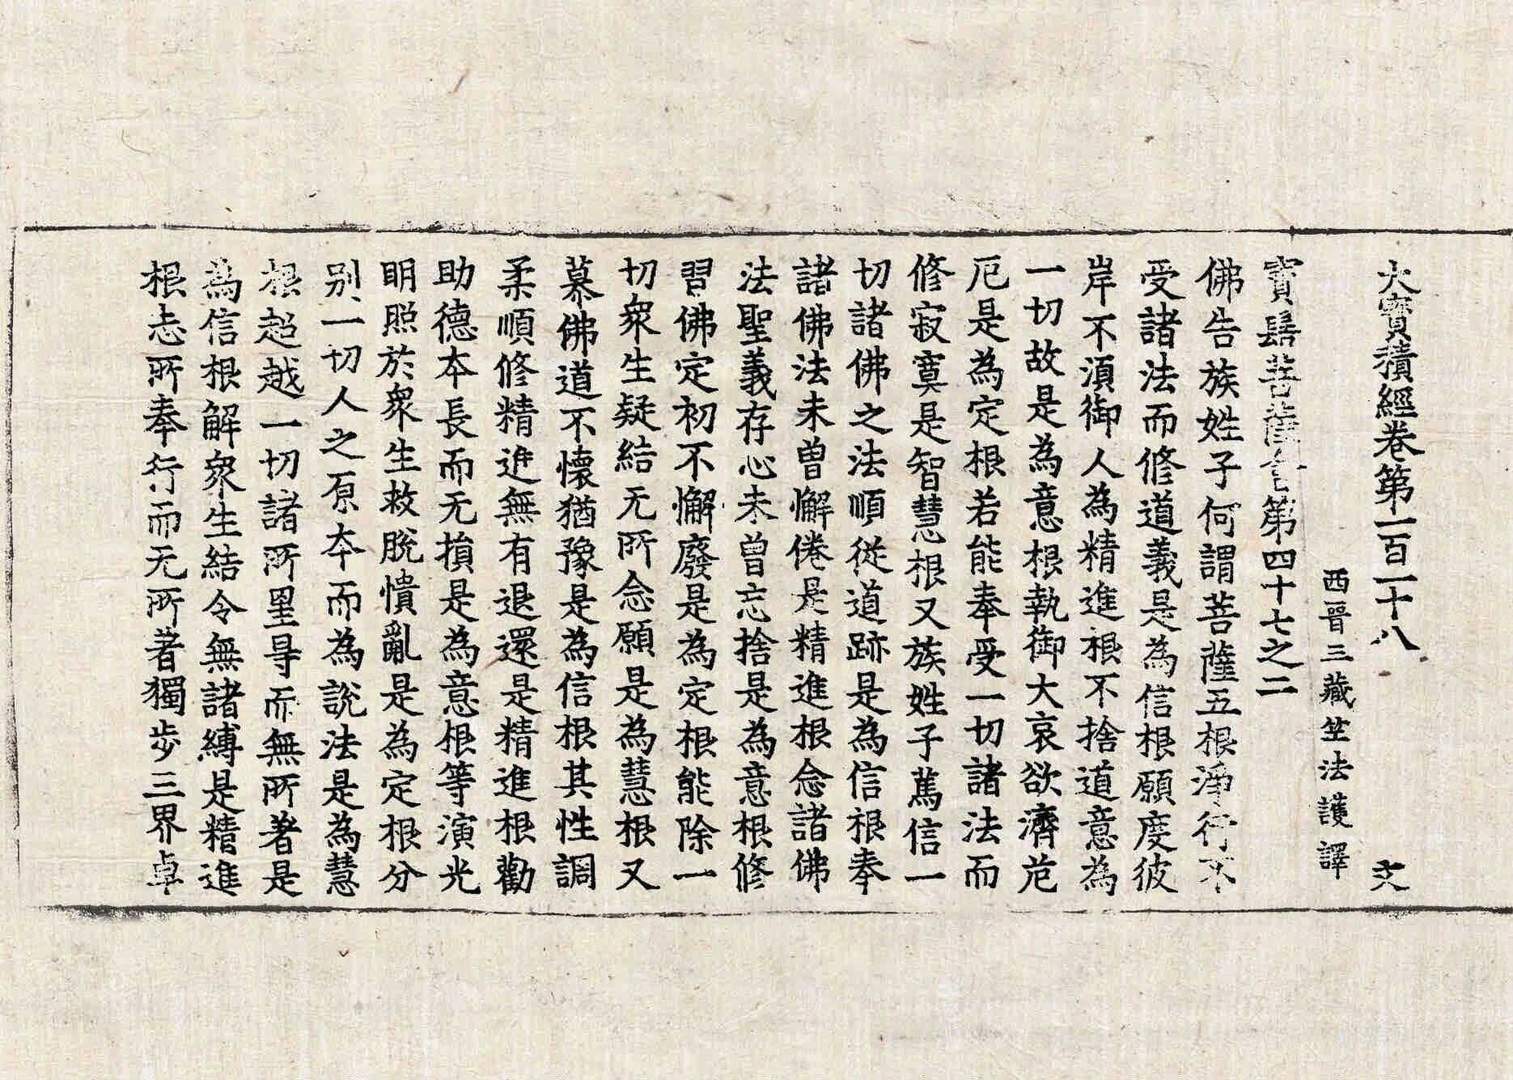 大寳積經卷第一百一十八
西晉三藏竺法護譯
寳髻菩薩會第四十七之二
佛告族姓子何謂菩薩五根淨行不
受諸法而修道義是為信根願度彼
岸不湏御人為精進根不捨道意為
一切故是為意根執御大哀欲濟危
厄是為定根若能奉受一切諸法而
修寂寞是智慧根又族姓子篤信一
切諸佛之法順從道跡是為信根奉
諸佛法未曽懈倦是精進根念諸佛
法聖義存心未曽忘捨是為意根修
習佛定初不懈廢是為定根能除一
切衆生疑結无所念願是為慧根又
慕佛道不懷猶豫是為信根其性調
柔順修精進無有退還是精進根勸
助德夲長而无損是為意根等演光
明照於衆生救脫憒亂是為定根分
别一切人之原夲而為說法是為慧
根超越一切諸所罣㝵而無所著是
為信根解衆生結令無諸縛是精進
根志所奉行而无所著獨歩三界卓